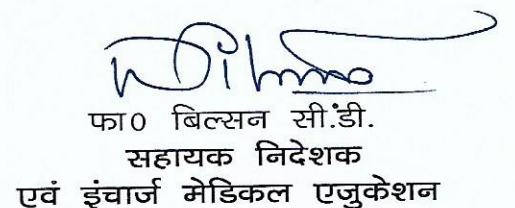 फा० बिल्सन सी.डी.
सहायक निदेशक
एवं इंचार्ज मेडिकल एजुकेशन